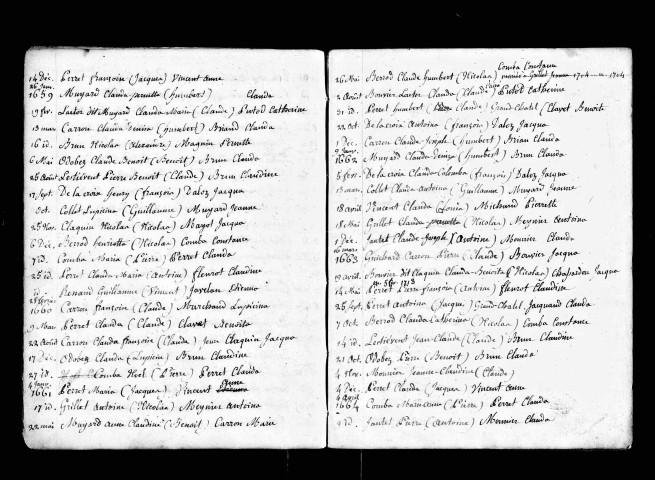 14 Déc. Perret françoise (Jacques) Vincent anne
26 Janv.
1659 Muyard Claude-pernette (humbert) Claude
19 fév. Lartor dit Muyard Claude-Marie (Claude) Putod Catherine
13 mars Carron Claude Denise (humbert) Briand Claude
16 id. Brun Nicolas (Alexandre) Maguin Pernette
6 Mai Odobez Claude Benoit (Benoît) Brun Claude
25 Août Lestievent Pierre Benoit (Claude) Brun Claudine
17 Sept. De la croix henry (françois) Dalez Jacqua
Oct. Collet Lupicine (Guillaume) Muyard Jeanne
25 Nov. Claquin Nicolas (Nicolas) Mayet Jacqua
6 Déc. Berrod henriette (Nicolas) Comba Constance
7 id. Comba Maria (Pierre) Perret Claude
25 id. Perret Claude Maria (antoine) fleurot Claudine
id. Renaud Guillaume (Vincent) Jovelin Etienne
25 février
1660 Carron françoise (Claude) Marechand Lupicine
9 Mars Perret Claudea (Claude) Clavet Benoite
22 Août Carron Claude françoise (Claude) Jeune Claquin Jacqua
17 Déc. Odobez Claude (Lupicin) Brun Claudine
27 id. Comba Noel (Pierre) Perret Claude
4 Janv. anne
1661 Perret Maria (Jacques) Vincent
17 id. Grillet Antoine (Nicolas) Meynier antoine
22 mai Muyard anne Claudine (Benoit) Carron Marie
Comba Constance
26 Mai Berrod Claude humbert (Nicolas) 1704
2 Août Bouvier Lartor Claude (Claude) Putod Catherine
31 id. Perret humbert (Claude) Grand-Chatel (Clavet Benoite
22 Oct. De la croix Antoine (françois) Dalez Jacqua
1 Déc. Carron Claude Joseph (humbert) Brian Claude
9 Janv.
1662 Muyard Claude-Denise (humbert) Brun Claude
5 fév. De la croix Claude-Colomba (françois) Dalez Jacqua
15 mars Collet Claude-antoine (Guillaume) Muyard Jeanne
18 avril Vincent Claude (Louis) Michaud Pierrette
18 Mai Grillet Claude pernette (Nicolas) Meynier antoine
1 Déc. Jantet Claude-Joseph (Antoine) Monnier Claude
16 mars
1663 Guichard Carron Pierre (Claude) Bouvier Jacqua
19 avril Bouvier dit Claquin Claude-Benoite (Nicolas) Chapadou Jacqua
14 Mai Perret Pierre-françois (antoine) fleurot Claudine
25 Sept. Perret Antoine (Jacques) Grand-Chatel Jacquand Claude
7 Oct. Berrod Claude-Catherine (Nicolas) Comba Constance
14 id. Lestievent Jean-Claude (Claude) Brun Claudine
21 Oct. Odobez Pierre (Benoît) Brun Claude
4 Nov. Monnier Jeanne-Claudine (Claude)
4 Déc. Perret Claude (Jacques) Vincent anne
4 avril
1664 Comba Marie anne (Pierre) Perret Claude
9 id. Jantet Pierre (Antoine) Monnier Claude